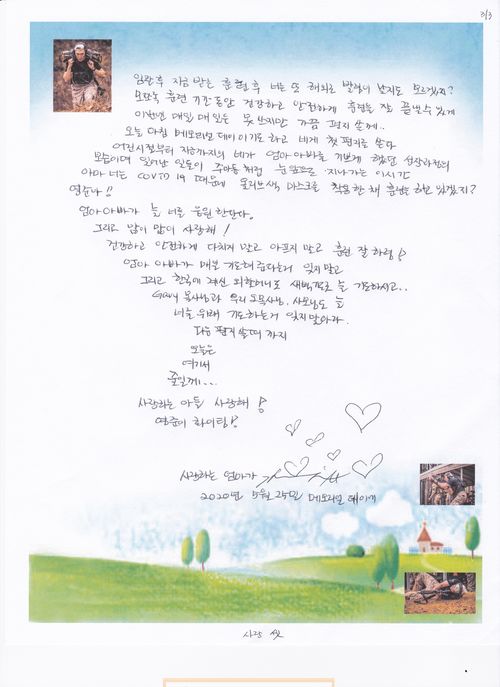 3/3
임관후 지금 받는 훈련후 너는 또 해외로 발령이 날지도 모르겠지?
모란눅 훈련 기간동안 건강하고 안전하게 훈련을 잘 끝낼수 있게
이천번 매일 매일은 못 쓰지만 가끔 편지 쓸께..
오늘 마침 메모리얼 데이 이기도 하고 네게 첫 편지를 쓴다
어린시절부터 지금까지의 네가 엄마 아빠를 기쁘게 했던 성장과정의
모습이며 일어난 일들이 주마등 처럼 눈앞으로 지나가는 이시간
아마 너는 COVID 19 때문에 올리브색 마스크를 착용한 채 훈련을 하고 있겠지?
영준아!!
엄마 아빠가 늘 너를 응원 한단다.
그리고 많이 많이 사랑해!
건강하고 안전하게 다치지 말고 아프지 말고 훈련 잘 하렴!
엄마 아빠가 매일 기도해 준다는거 잊지말고
그리고 한국에 계신 외할머니도 새벽기도로 늘 기도하시고..
Gary 목사님과 우리 도목사님, 사모님도 늘
너를 위해 기도하는거 잊지 말아라.
다음 편지 쓸때 까지
오늘은
여기서
줄일께...
사랑하는 아들 사랑해!
영준이 화이팅!
사랑하는 엄마가
2020년 5월 25일 메모리얼 데이에
사랑